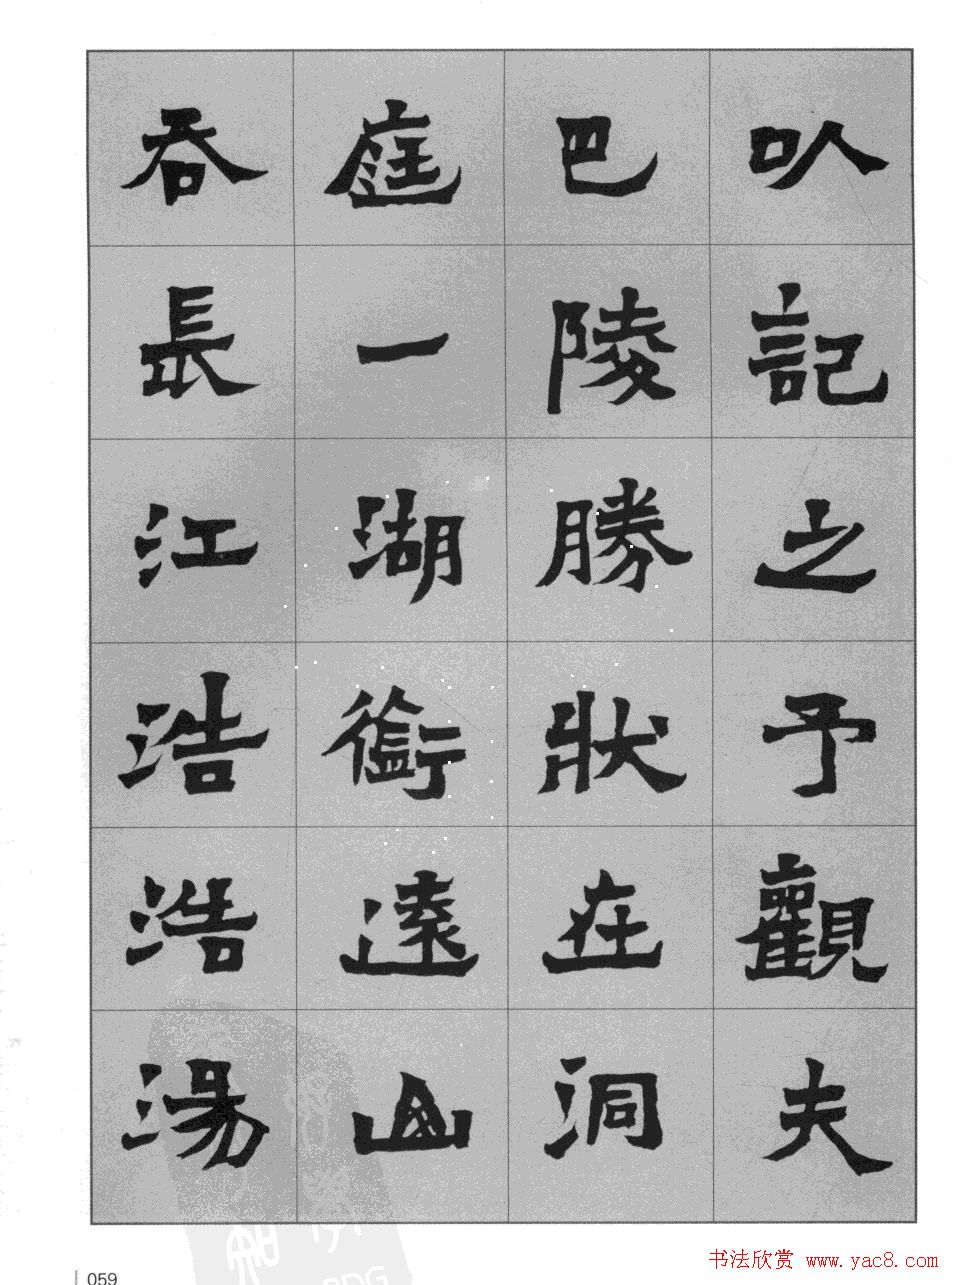 㕥記之予觀夫
巴陵勝狀在洞
庭一湖銜遠山
吞長江浩浩湯
059
书法欣赏 www.yac8.com